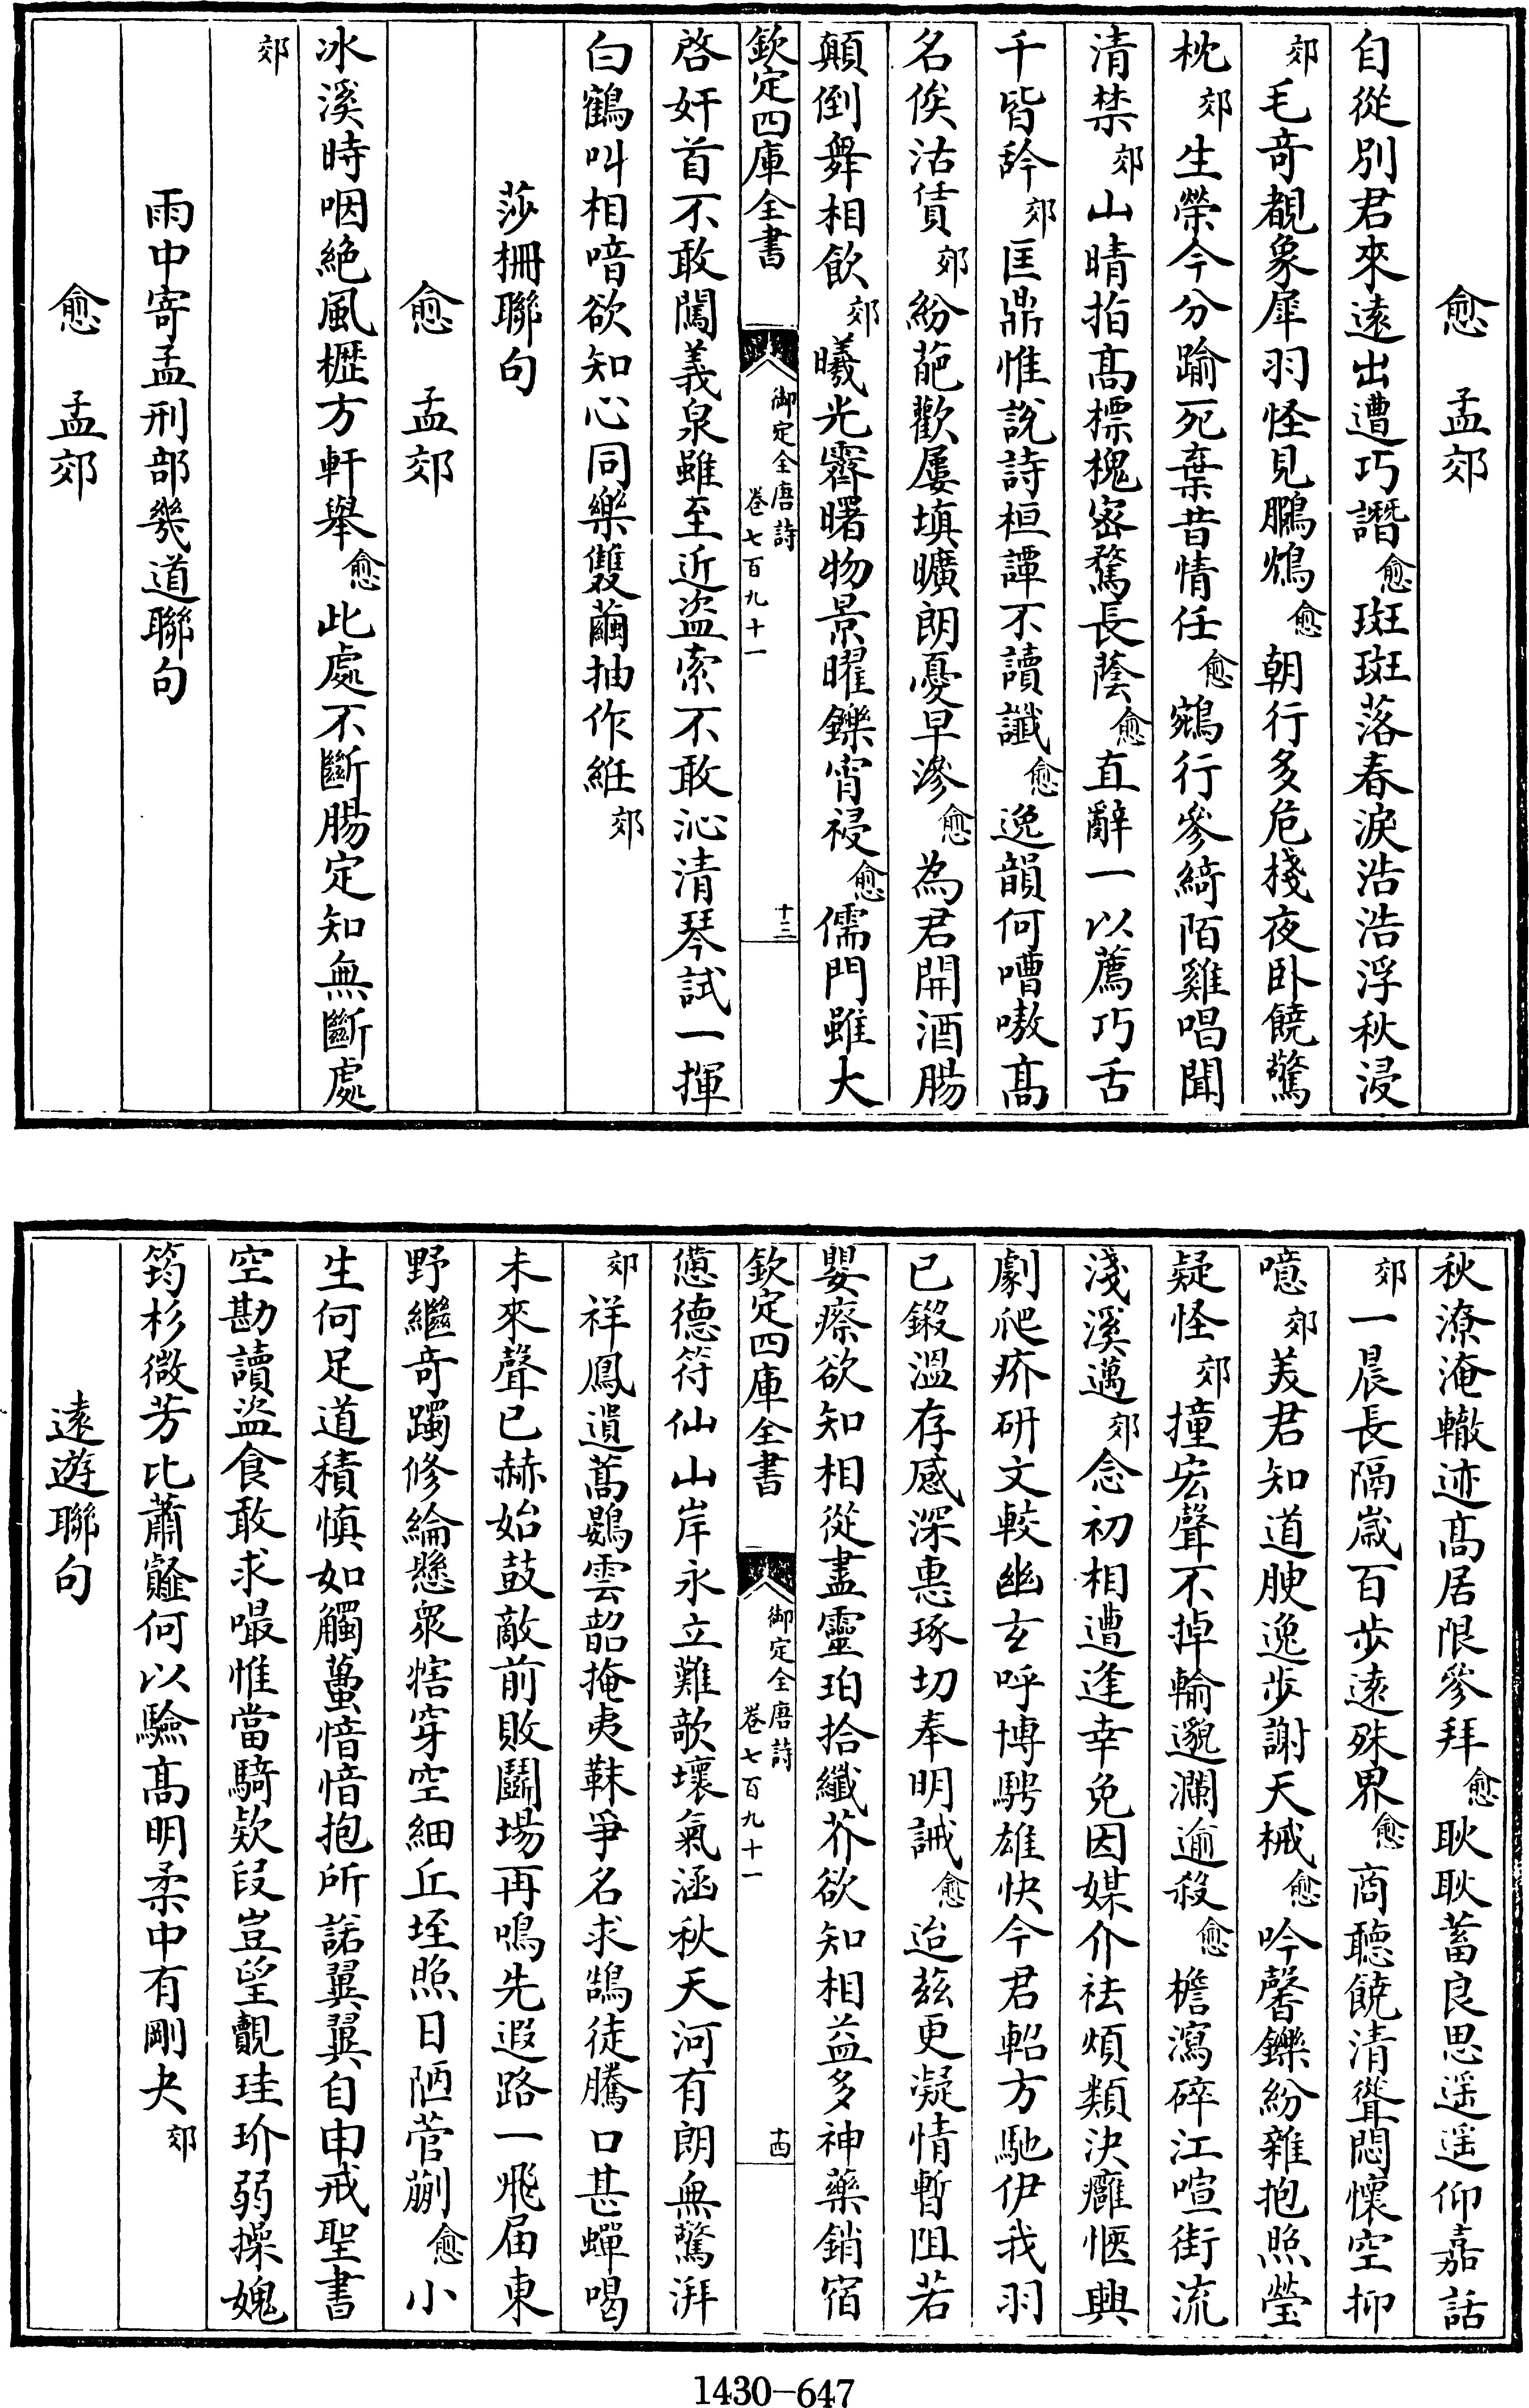 愈　孟郊
自從別君來遠出遭巧譖愈斑斑落春淚浩浩浮秋浸
郊毛奇覩象犀羽怪見鵩鴆愈朝行多危棧夜卧饒驚
枕郊生榮今分踰死棄昔情任愈鵷行參綺陌雞唱聞
清禁郊山晴指髙標槐密鶩長蔭愈直辭一以薦巧舌
千皆㱃郊匡鼎惟說詩桓譚不讀讖愈逸韻何嘈嗷髙
名俟沽賃郊紛葩歡屢填曠朗憂早滲愈為君開酒腸
顛倒舞相飲郊曦光霽曙物景曜鑠宵祲愈儒門雖大
欽定四庫全書　御定全唐詩卷七百九十一　十三
啓奸首不敢闖義泉雖至近盜索不敢沁清琴試一揮
白鶴叫相喑欲知心同樂雙繭抽作紝郊
莎栅聯句
愈　孟郊
冰溪時咽絶風櫪方軒舉愈此處不斷腸定知無斷處
郊
雨中寄孟刑部幾道聯句
愈　孟郊
秋潦淹轍迹髙居限參拜愈耿耿蓄良思遥遥仰嘉話
郊一晨長隔歲百步遠殊界愈商聽饒清聳悶懷空抑
噫郊美君知道腴逸步謝天械愈吟馨鑠紛雜抱照瑩
疑怪郊撞宏聲不掉輸邈瀾逾殺愈檐瀉碎江喧街流
淺溪邁郊念初相遭逢幸免因媒介祛煩類決癰愜興
劇爬疥研文較幽玄呼博騁雄快今君軺方馳伊我羽
已鎩溫存感深惠琢切奉明誡愈迨兹更凝情暫阻若
嬰瘵欲知相從盡靈珀拾纖芥欲知相益多神藥銷宿
欽定四庫全書　御定全唐詩卷七百九十一　十四
憊德符仙山岸永立難欹壞氣涵秋天河有朗無驚湃
郊祥鳳遺蒿鷃雲韶掩夷靺爭名求鵠徒騰口甚蟬喝
未來聲已赫始鼓敵前敗鬭場再鳴先遐路一飛届東
野繼奇躅修綸懸衆犗穿空細丘垤照日陋菅蒯愈小
生何足道積慎如觸蠆愔愔抱所諾翼翼自申戒聖書
空勘讀盜食敢求嘬惟當騎欵段豈望覿珪玠弱操媿
筠杉微芳比蕭䪥何以驗髙明柔中有剛夬郊
遠遊聯句
1430-647